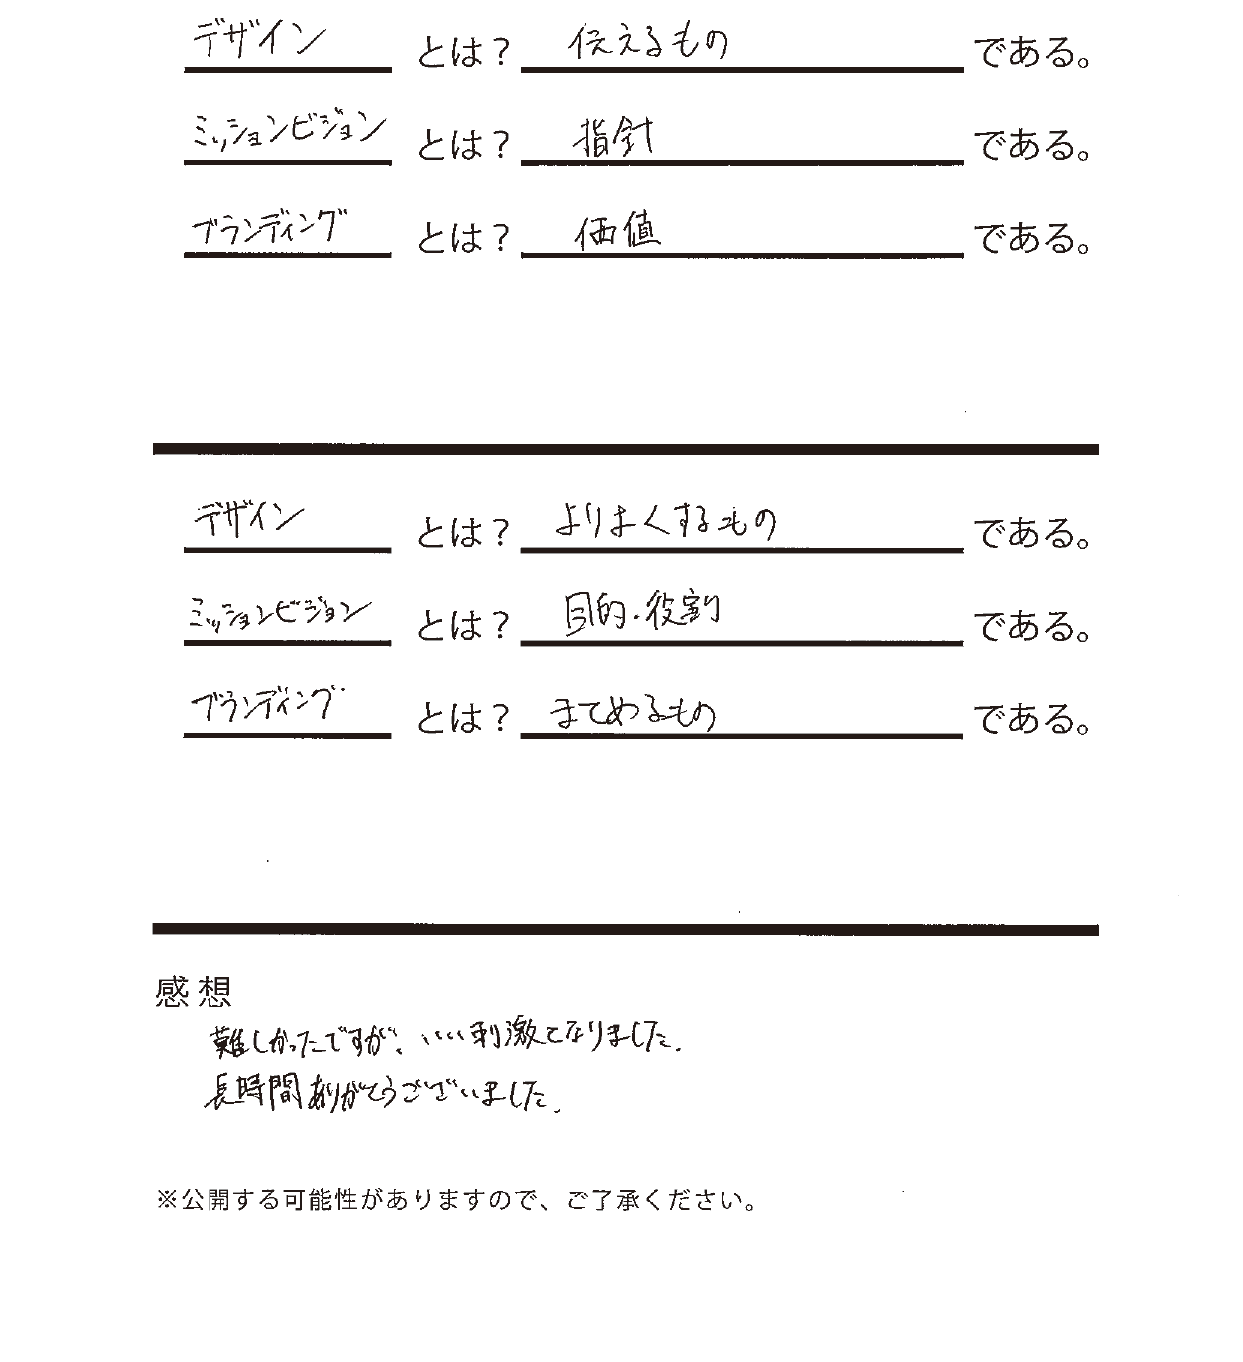 デザイン とは? 伝えるもの である。
ミッションビジョン とは? 指針 である。
ブランディング とは? 価値 である。
デザイン とは? よりよくするもの である。
ミッションビジョン とは? 目的・役割 である。
ブランディング とは? まとめるもの である。
感想
難しかったですが、いい刺激となりました。
長時間ありがとうございました。
※公開する可能性がありますので、ご了承ください。